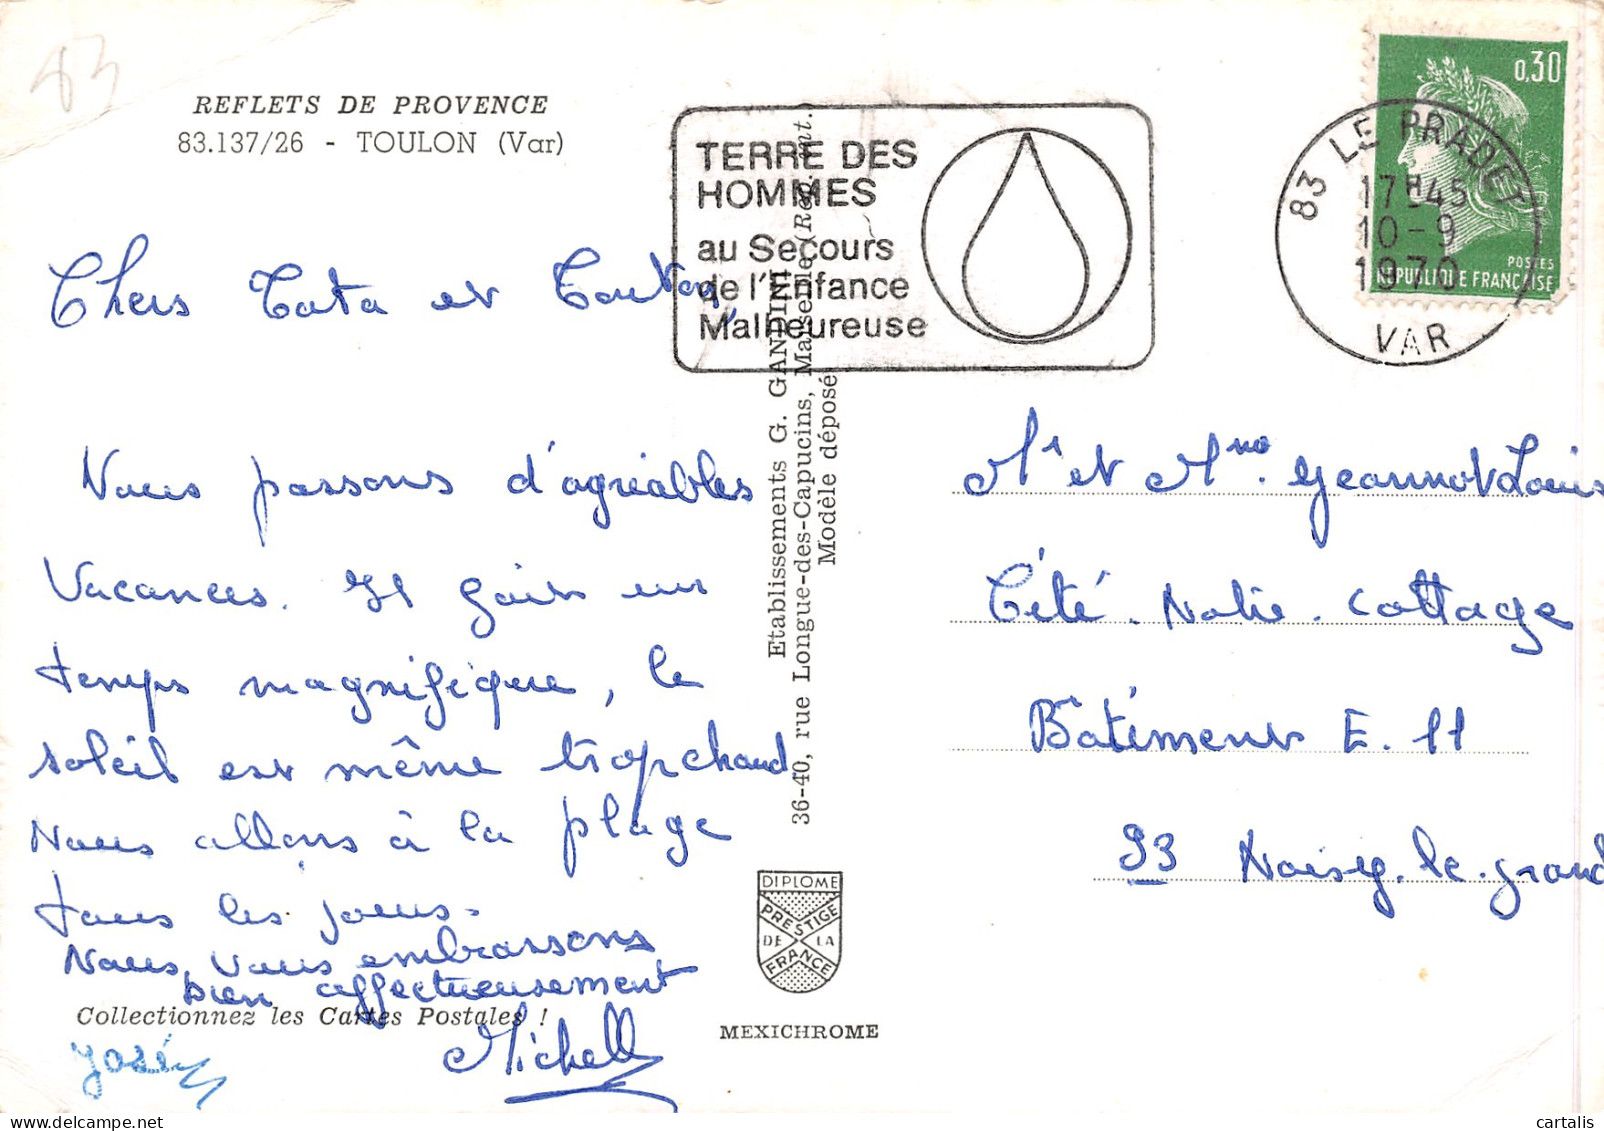 83
REFLETS DE PROVENCE
83.137/26 - TOULON (Var)
TERRE DES
HOMMES
au Secours
de l'Enfance
Malheureuse
83 LE PRADET
17H45
10-9
1970
VAR
0,30
POSTES
REPUBLIQUE FRANÇAISE
Chers Tata et Tonton,
Nous passons d'agréables
Vacances. Il fait un
temps magnifique, le
soleil est même trop chaud
Nous allons à la plage
tous les jours.
Nous vous embrassons
bien affectueusement
Michelle
José
Collectionnez les Cartes Postales !
Etablissements G. GANDINI
36-40, rue Longue-des-Capucins, Marseille
Modèle déposé
DIPLOME
PRESTIGE
DE LA
FRANCE
MEXICHROME
Mr et Mme Jeannot Louis
Cité. Notre. Cottage
Bâtiment E. 11
93 Noisy. le. grand
cartalis